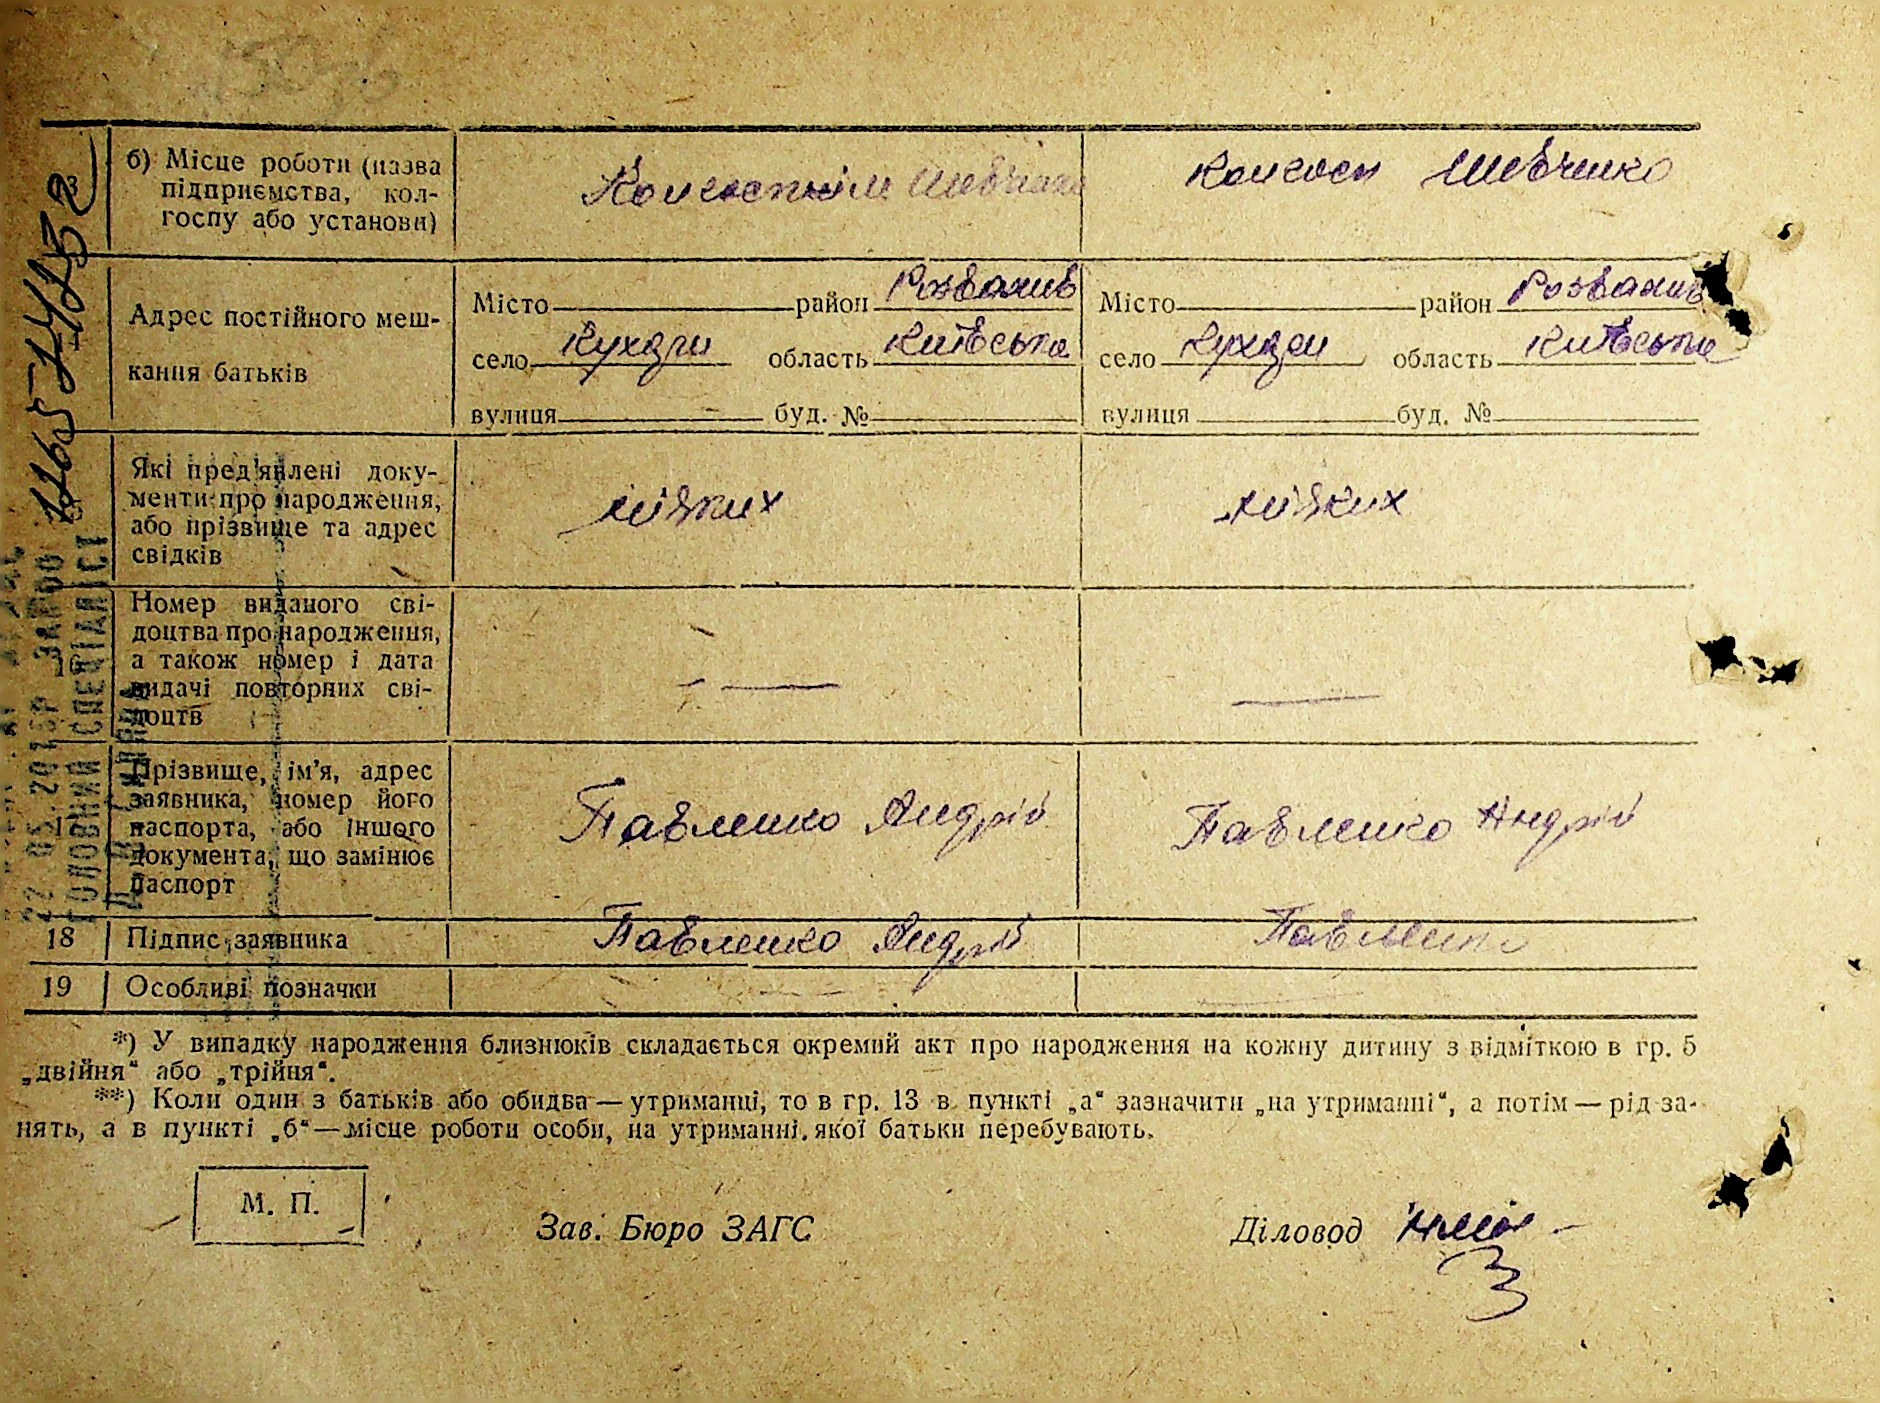 б) Місце роботи (назва
підприємства, кол-
госпу або установи)
Шевченко
Колгосп Шевченко
13
Адрес постійного меш-
кання батьків
Місто район Розважів
село Кухари область Київська
вулиця буд. №
Місто район Розважів
село Кухари область Київська
вулиця буд. №
Які пред'явлені доку-
менти про народження,
або прізвище та адрес
свідків
ніяких
ніяких
16
Номер виданого сві-
доцтва про народження,
а також номер і дата
видачі повторних сві-
доцтв
17
Прізвище, ім'я, адрес
заявника, номер його
паспорта, або іншого
документа, що замінює
паспорт
Павленко Андрій
Павленко Андрій
18 Підпис заявника Павленко Андрій Павленко
19 Особливі позначки
ГОЛОВНИЙ СПЕЦІАЛІСТ
*) У випадку народження близнюків складається окремий акт про народження на кожну дитину з відміткою в гр. 5
„двійня“ або „трійня“.
**) Коли один з батьків або обидва — утриманці, то в гр. 13 в пункті „а“ зазначити „на утриманні“, а потім — рід за-
нять, а в пункті „б“ — місце роботи особи, на утриманні якої батьки перебувають.
М. П.
Зав. Бюро ЗАГС
Діловод